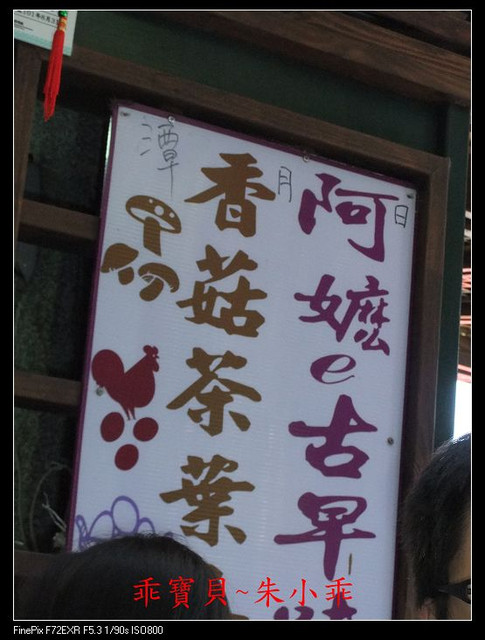 阿嬤e古早味
香菇茶葉
日
月
潭
乖寶貝~朱小乖
FinePix F72EXR F5.3 1/90s ISO800